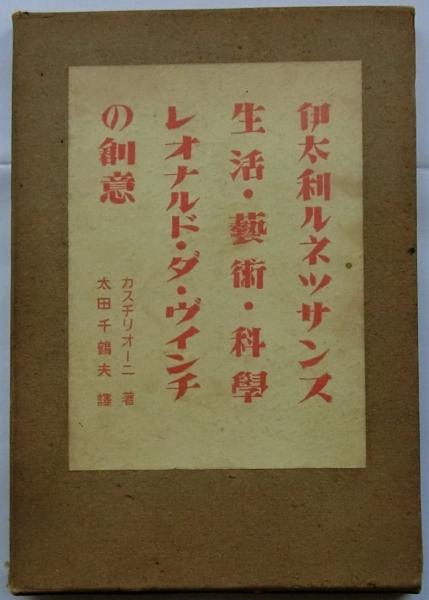 伊太利ルネツサンス
生活・藝術・科學
レオナルド・ダ・ヴインチ
の創意
カスチリオーニ 著
太田千鶴夫 譯